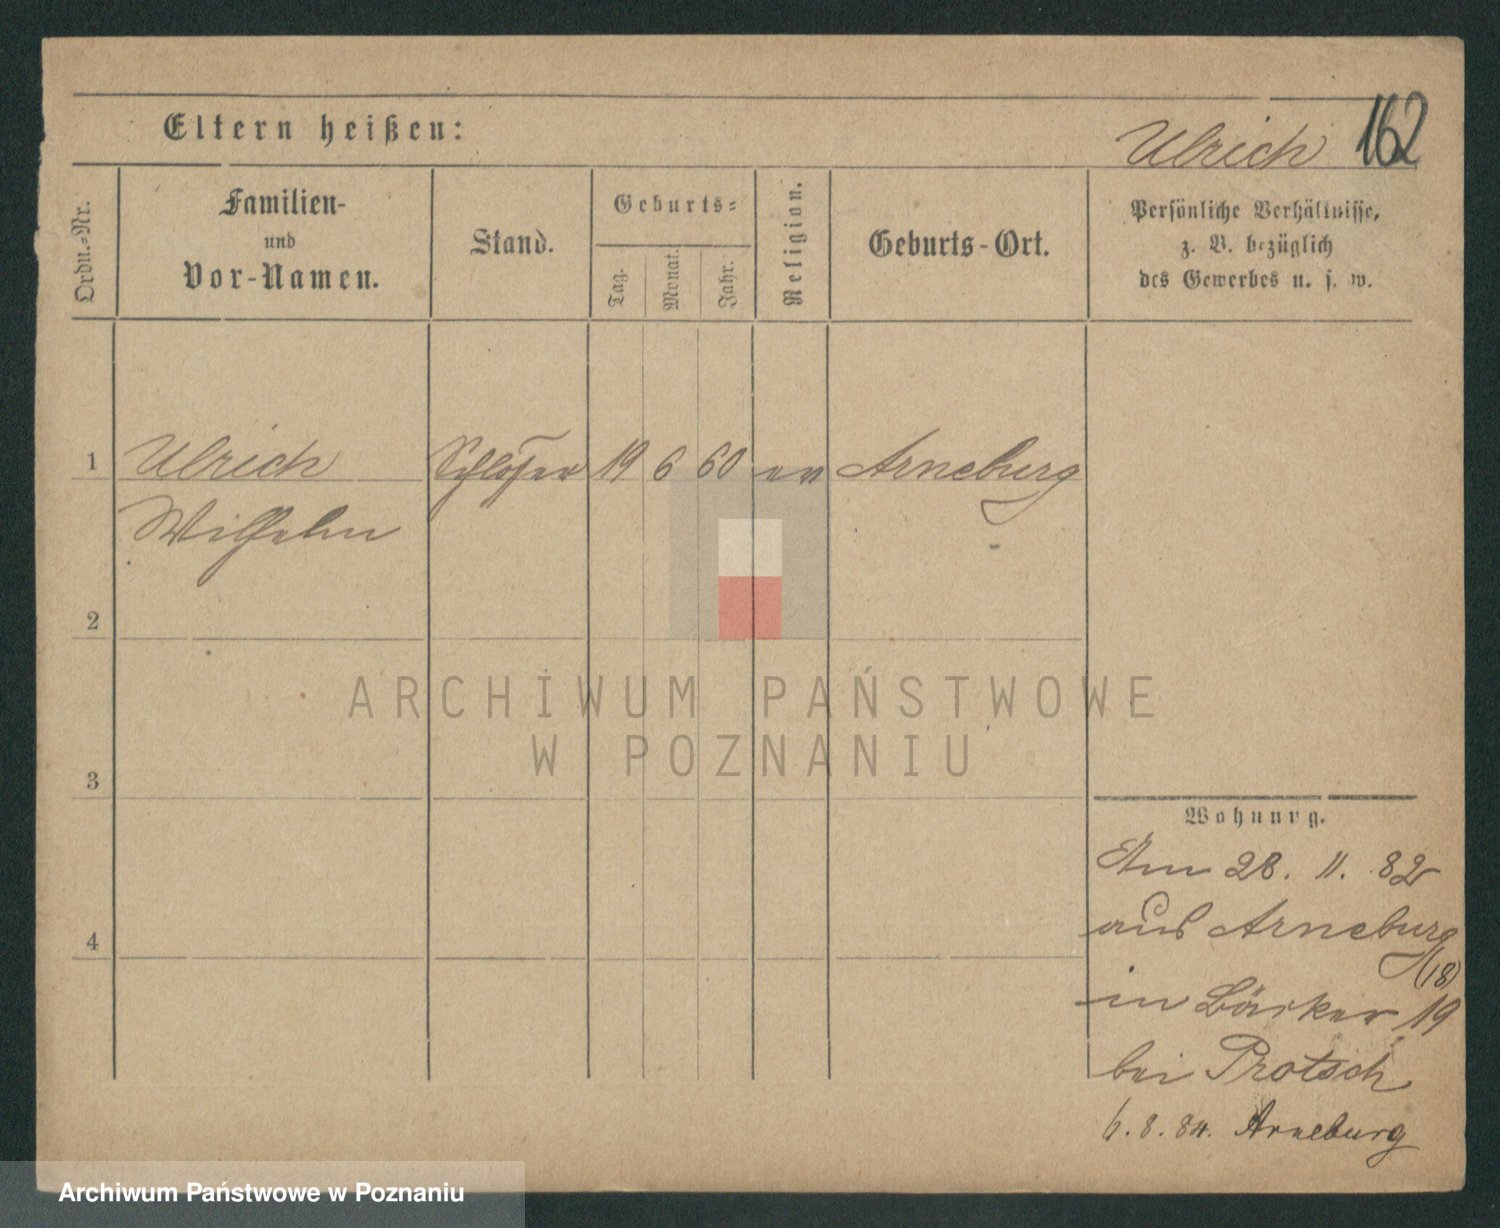 162
Eltern heißen:
Ulrich
Ordn.-Nr.
Familien-
und
Vor-Namen.
Stand.
Geburts-
Tag.
Monat.
Jahr.
Religion.
Geburts-Ort.
Persönliche Verhältnisse,
z. B. bezüglich
des Gewerbes u. s. w.
1 Ulrich Schlosser 19 6 60 ev Arneburg
Wilhelm
2
3
4
Wohnung.
Am 28. 11. 82
aus Arneburg
(18)
in Bäcker 19
bei Protsch
6. 8. 84. Arneburg
ARCHIWUM PAŃSTWOWE
W POZNANIU
Archiwum Państwowe w Poznaniu